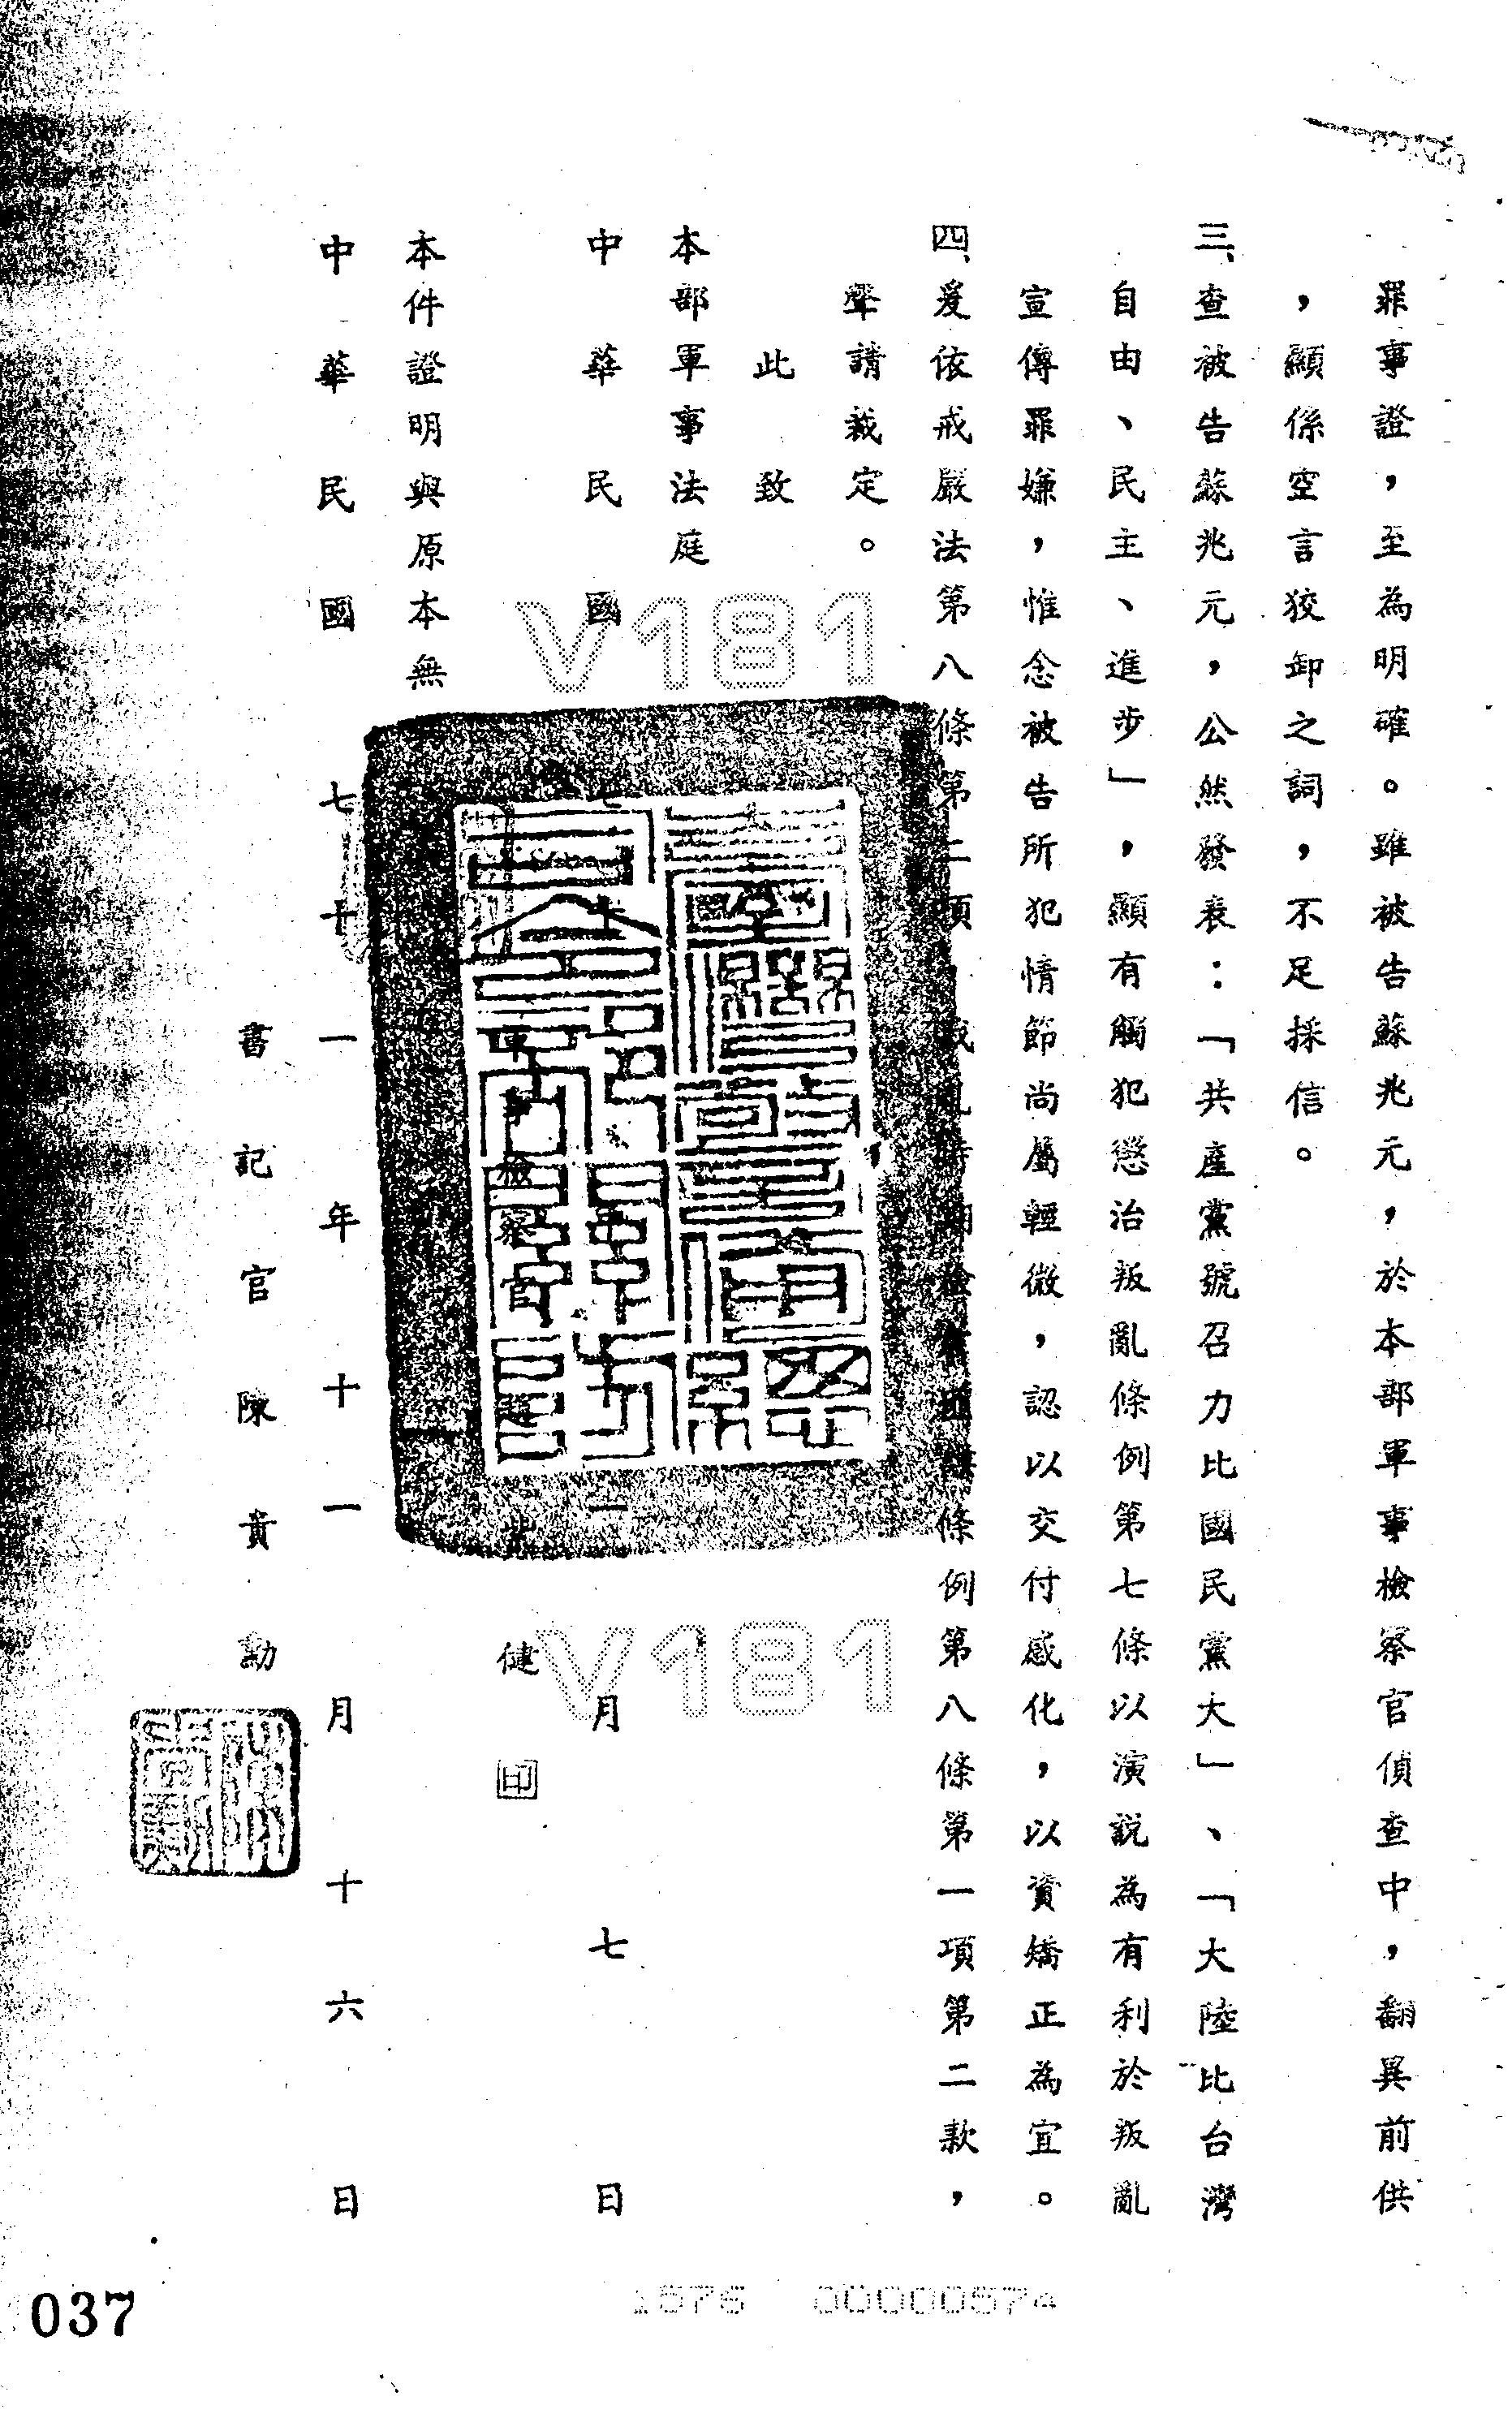 罪事證，至為明確。雖被告蘇兆元，於本部軍事檢察官偵查中，翻異前供
，顯係空言狡卸之詞，不足採信。
三、查被告蘇兆元，公然發表：「共產黨號召力比國民黨大」、「大陸比台灣
自由、民主、進步」，顯有觸犯懲治叛亂條例第七條以演説為有利於叛亂
宣傳罪嫌，惟念被告所犯情節尚屬輕微，認以交付感化，以資矯正為宜。
四、爰依戒嚴法第八條第二項、戡亂時期檢肅匪諜條例第八條第一項第二款，
聲請裁定。
此致
本部軍事法庭
中華民國七十一年十一月七日
軍事檢察官 健 印
本件證明與原本無
中華民國七十一年十一月十六日
書記官陳貴勳
V181
V181
1576 00000574
037